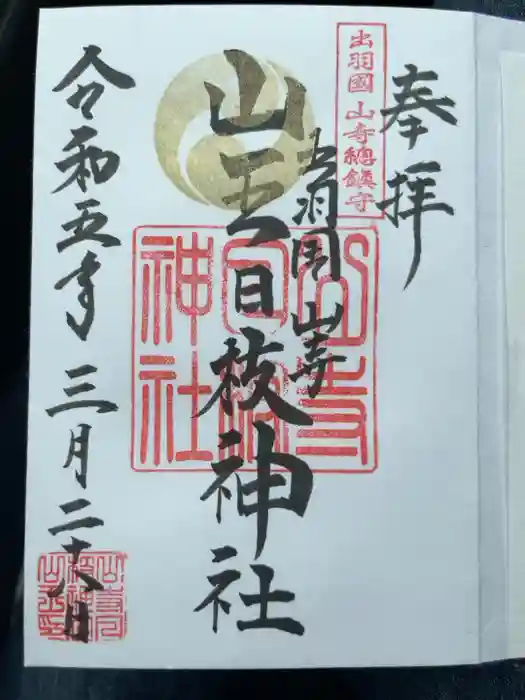 奉拝
出羽國 山寺總鎮守
出羽国 山寺
山王日枝神社
山寺日枝神社
令和五年三月二十八日